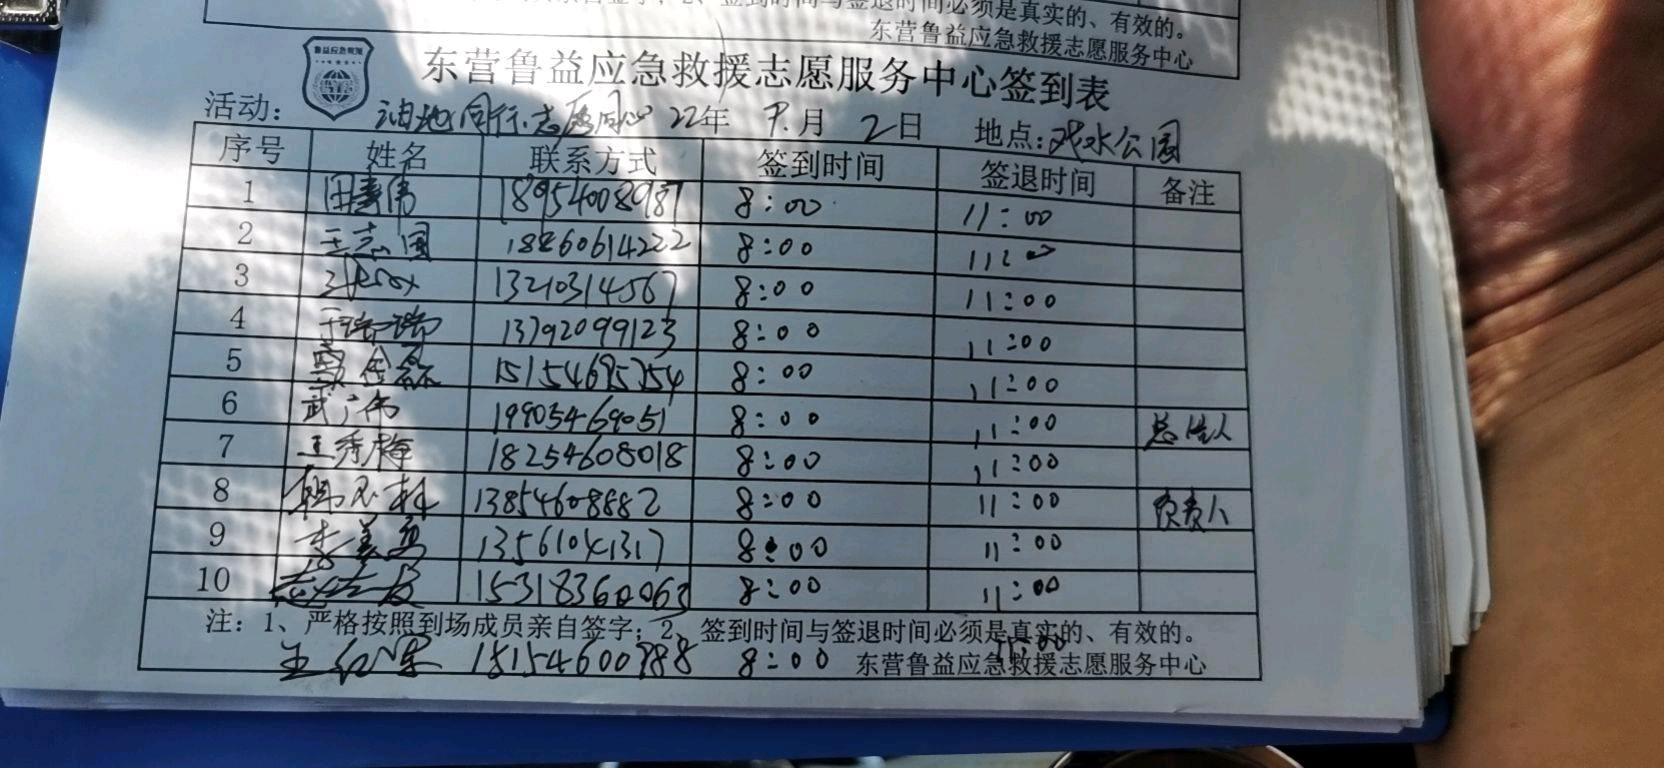 签到时间与签退时间必须是真实的、有效的。
东营鲁益应急救援志愿服务中心
鲁益应急救援
东营鲁益应急救援志愿服务中心签到表
活动：油地同行·志愿同心 22年 月 2日 地点：戏水公园
序号 姓名 联系方式 签到时间 签退时间 备注
1 田寿伟 18954008987 8:00 11:00
2 王志国 18860614222 8:00 11:00
3 13210314567 8:00 11:00
4 于瑞瑞 13792099123 8:00 11:00
5 15154695754 8:00 11:00
6 武广伟 19905469051 8:00 11:00 总负责人
7 王秀梅 18254608018 8:00 11:00
8 韩玉林 13854608882 8:00 11:00 负责人
9 李美勇 13561041317 8:00 11:00
10 15318360063 8:00 11:00
注：1、严格按照到场成员亲自签字；2、签到时间与签退时间必须是真实的、有效的。
王红军 18154600988 8:00 11:00
东营鲁益应急救援志愿服务中心